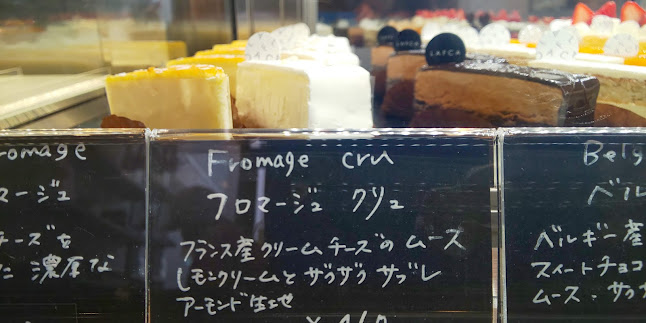 LAFCA
romage
マージュ
チーズを
た 濃厚な
Fromage cru
フロマージュ クリュ
フランス産クリームチーズのムース
レモンクリームと ザクザク サブレ
アーモンド生地
Belg
ベル
ベルギー産
スイートチョコ
ムース・サク